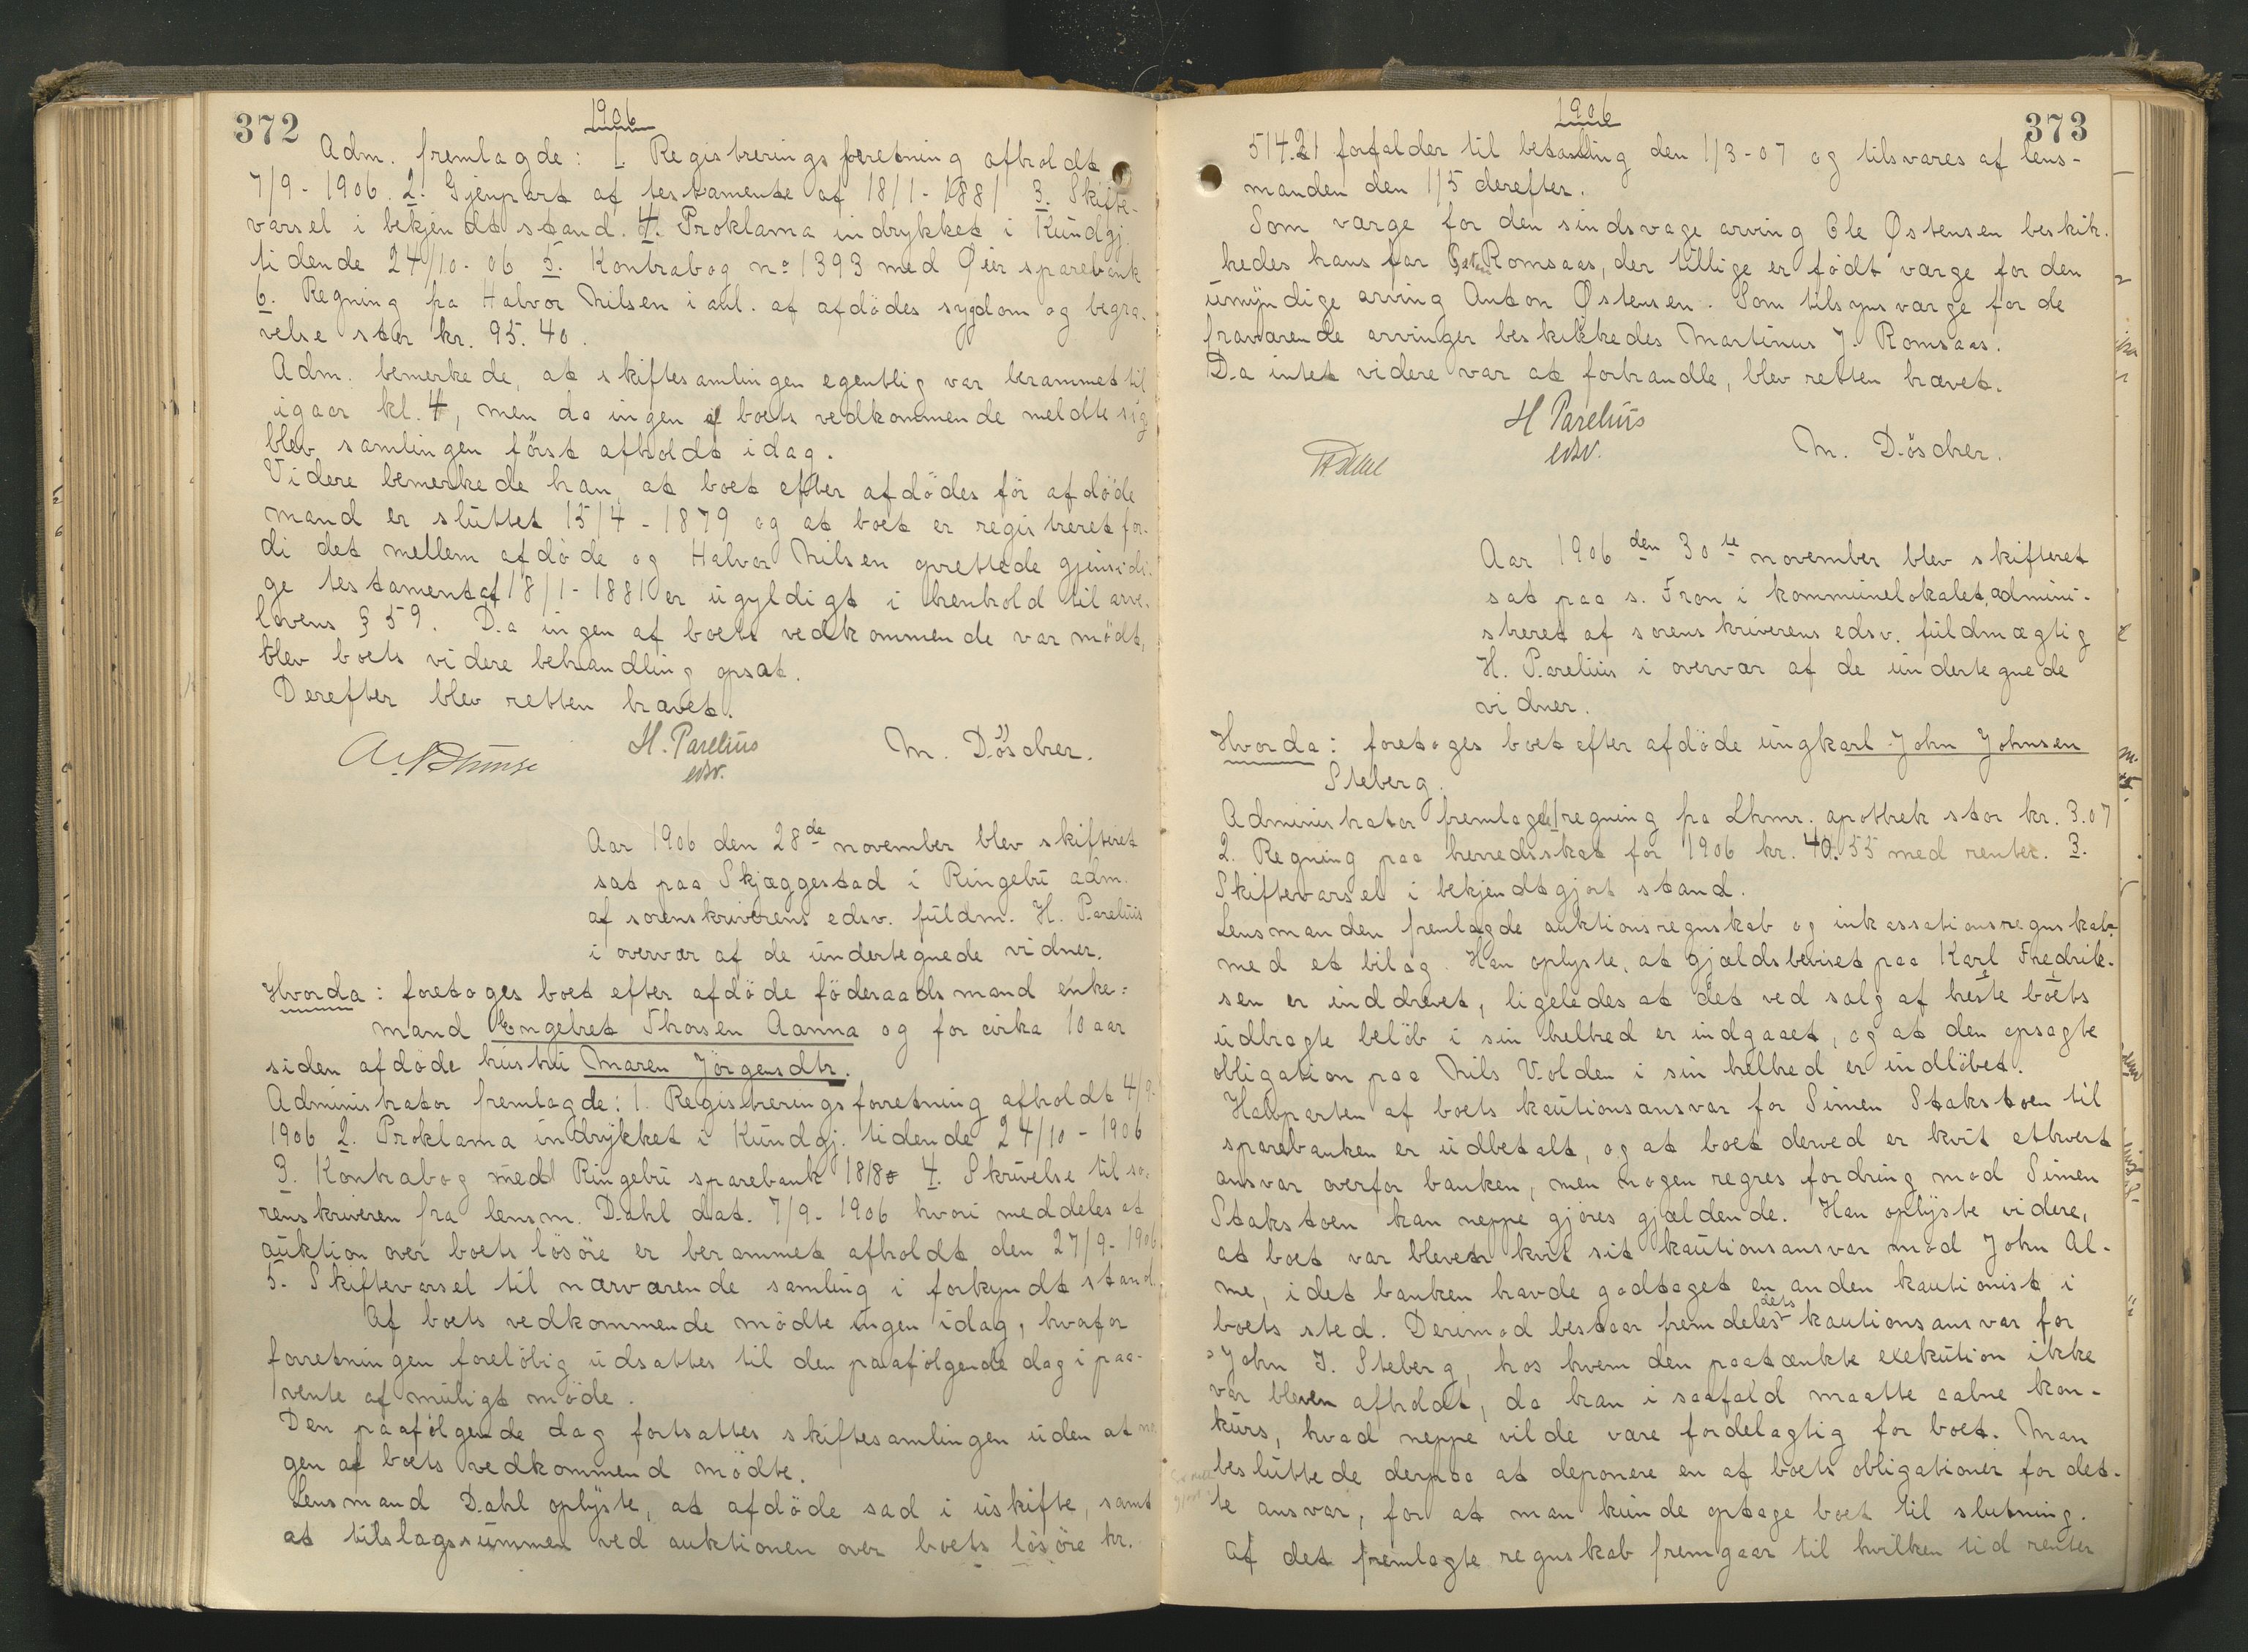 372
1906
Adm. fremlagde: 1. Registreringsforretning afholdt
7/9-1906. 2. Gjenpart af testamente af 18/1-1881 3. Skifte-
varsel i bekjendt stand. 4. Proklama indrykket i Kundgj.
tidende 24/10-06 5. Kontrabog no 1393 med Øier sparebank
6. Regning fra Halvor Nilsen i anl. af afdödes sygdom og begra-
velse stor kr. 95.40.
Adm. bemerkede, at skiftesamlingen egentlig var berammet til
igaar kl. 4, men da ingen af boets vedkommende meldte sig
blev samlingen först afholdt idag.
Videre bemerkede han, at boet efter afdödes för afdöde
mand er sluttet 15/4-1879 og at boet er registreret for-
di det mellem afdöde og Halvor Nilsen oprettede gjensidi-
ge testament af 18/1-1881 er ugyldigt i henhold til arve-
lovens § 59. Da ingen af boets vedkommende var mödt,
blev boets videre behandling opsat.
Derefter blev retten hævet.
H. Parelius
edsv.
M. Döscher.
Aar 1906 den 28de november blev skifteret
sat paa Skjæggestad i Ringebu adm.
af sorenskriverens edsv. fuldm. H. Parelius
i overvær af de undertegnede vidner.
Hvorda: foretoges boet efter afdöde föderaadsmand enke-
mand Engebret Thorsen Aanna og for cirka 10 aar
siden afdöde hustru Maren Jörgensdtr.
Administrator fremlagde: 1. Registreringsforretning afholdt 4/9-
1906 2. Proklama indrykket i Kundgj. tidende 24/10-1906
3. Kontrabog med Ringebu sparebank 4. Skrivelse til so-
renskriveren fra lensm. Dahl dat. 7/9-1906 hvori meddeles at
auktion over boets lösöre er berammet afholdt den 27/9-1906
5. Skiftevarsel til nærværende samling i forkyndt stand.
Af boets vedkommende mödte ingen idag, hvorfor
forretningen forelöbig udsattes til den paafölgende dag i paa-
vente af muligt möde.
Den paafölgende dag fortsattes skiftesamlingen uden at no-
gen af boets vedkommend mödte.
Lensmand Dahl oplyste, at afdöde sad i uskifte, samt
at tilslagssummen ved auktionen over boets lösöre kr.
1906
373
514.21 forfalder til betaling den 1/3-07 og tilsvares af lens-
manden den 1/5 derefter.
Som værge for den sindsvage arving Ole Østensen beskik-
kedes hans far Romsaas, der tillige er födt værge for den
umyndige arving Anton Østensen. Som tilsynsværge for de
fraværende arvinger beskikkedes Martinus J. Romsaas.
Da intet videre var at forhandle, blev retten hævet.
H Parelius
edsv.
M. Döscher.
Aar 1906 den 30te november blev skifteret
sat paa s. Fron i kommunelokalet, admini-
streret af sorenskriverens edsv. fuldmægtig
H. Parelius i overvær af de undertegnede
vidner.
Hvorda: foretoges boet efter afdöde ungkarl John Johnsen
Steberg.
Administrator fremlagde 1 regning fra Lhmr. apothek stor kr. 3.07
2. Regning paa herredsskat for 1906 kr. 40.55 med renter. 3.
Skiftevarsel i bekjendtgjort stand.
Lensmanden fremlagde auktionsregnskab og inkassationsregnskab
med et bilag. Han oplyste, at gjældsbeviset paa Karl Fredrik-
sen er inddrevet, ligeledes at det ved salg af heste boets
udbragte belöb i sin helhed er indgaaet, og at den opsagte
obligation paa Nils Volden i sin helhed er indlöbet.
Halvparten af boets kautionsansvar for Simen Stakstoen til
sparebanken er udbetalt, og at boet derved er kvit ethvert
ansvar overfor banken, men nogen regresfordring mod Simen
Stakstoen kan neppe gjöres gjældende. Han oplyste videre,
at boet var blevet kvit sit kautionsansvar mod John Al-
me, idet banken havde godtaget en anden kautionist i
boets sted. Derimod bestaar fremdeles dets kautionsansvar for
John J. Steberg, hos hvem den paatænkte exekution ikke
var bleven afholdt, da han i saafald maatte aabne kon-
kurs, hvad neppe vilde være fordelagtig for boet. Man
besluttede derpaa at deponere en af boets obligationer for det-
te ansvar, for at man kunde optage boet til slutning.
Af det fremlagte regnskab fremgaar til hvilken tid renter